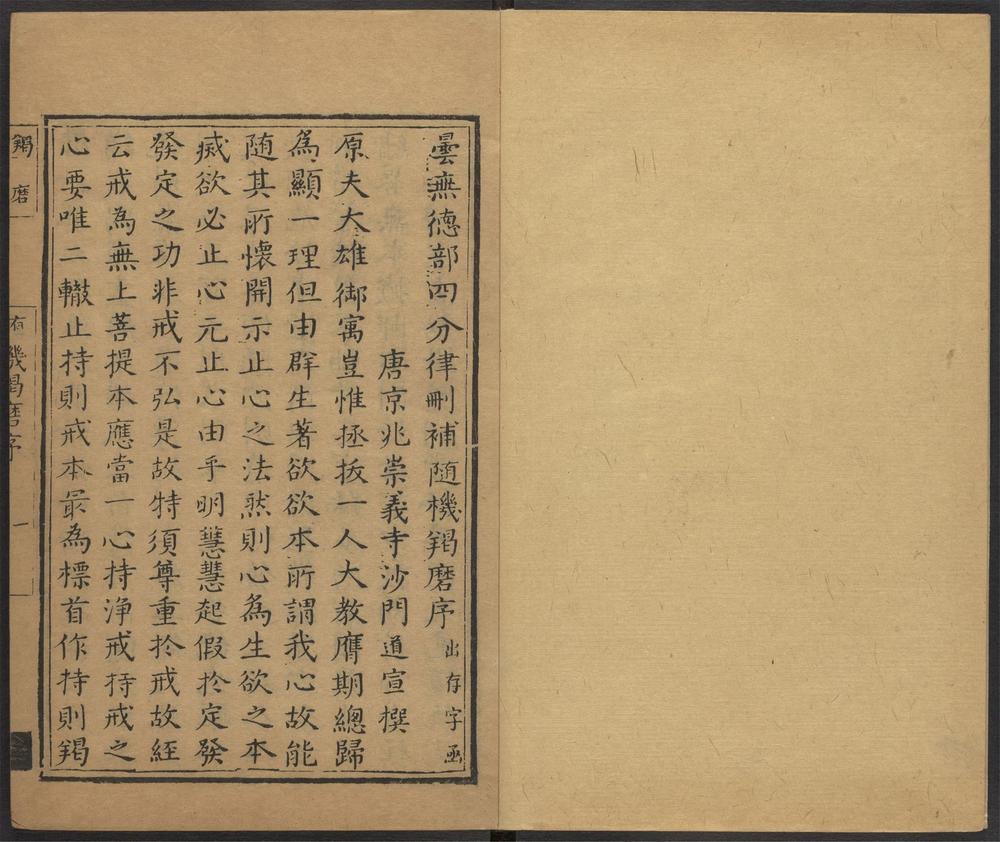 曇無德部四分律刪補隨機羯磨序 出存字函
唐京兆崇義寺沙門道宣撰
原夫大雄御寓豈惟拯拔一人大教膺期總歸
為顯一理但由群生著欲欲本所謂我心故能
隨其所懷開示止心之法然則心為生欲之本
滅欲必止心元止心由乎明慧慧起假於定發
發定之功非戒不弘是故特須尊重於戒故經
云戒為無上菩提本應當一心持淨戒持戒之
心要唯二轍止持則戒本最為標首作持則羯
羯磨
機羯磨序
一